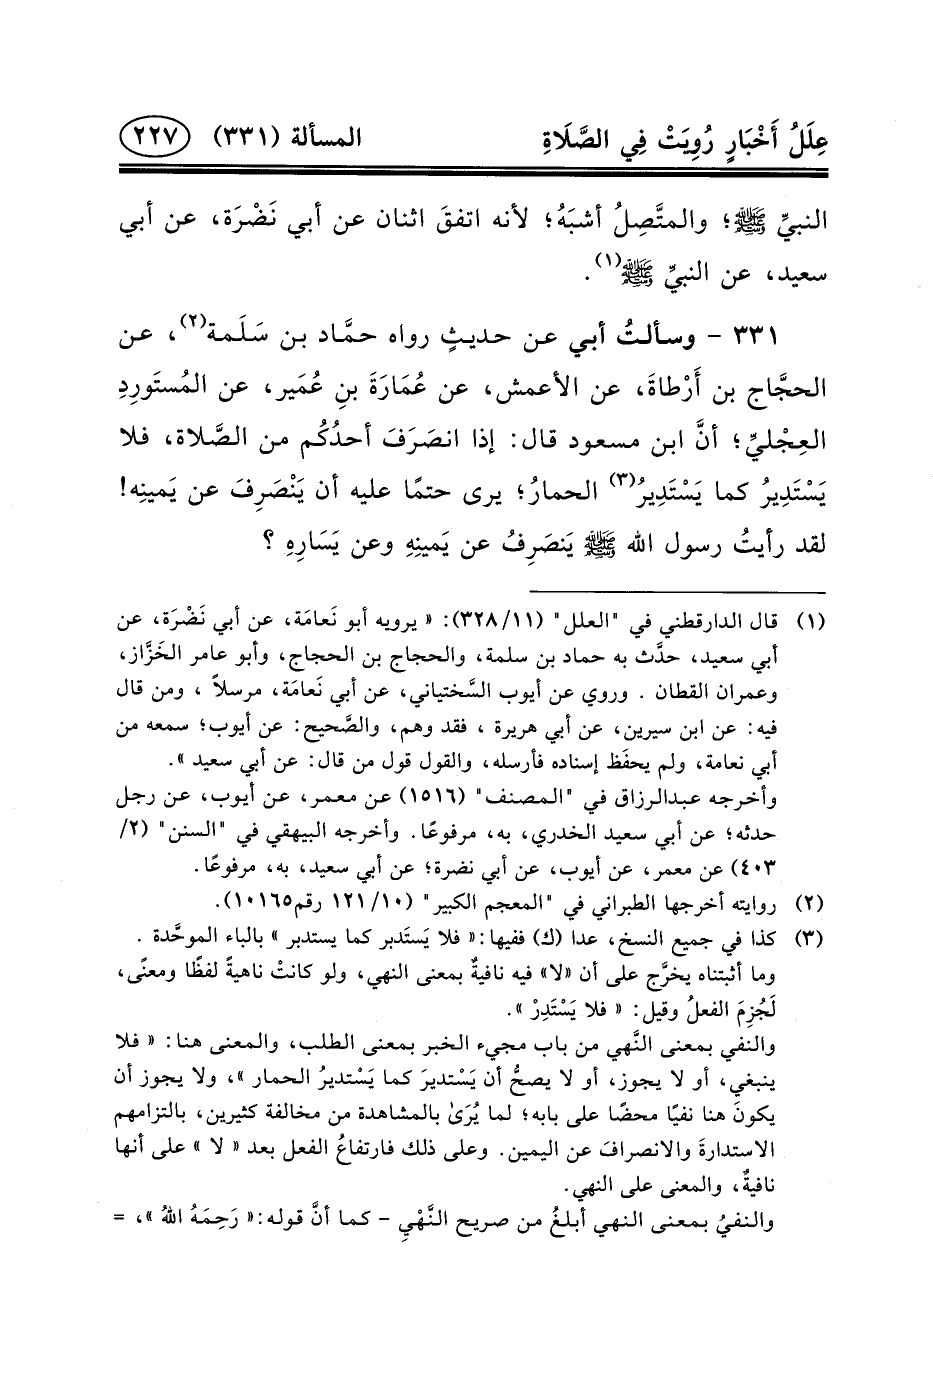 عِلَلُ أَخْبَارٍ رُوِيَتْ فِي الصَّلَاةِ المسألة (٣٣١) ٢٢٧
النبيِّ ﷺ؛ والمتَّصِلُ أشبَهُ؛ لأنه اتفقَ اثنان عن أبي نَضْرَة، عن أبي
سعيد، عن النبيِّ ﷺ(١).
٣٣١ - وسألتُ أبي عن حديثٍ رواه حمَّاد بن سَلَمة(٢)، عن
الحجَّاج بن أَرْطاةَ، عن الأعمش، عن عُمَارَةَ بنِ عُمَير، عن المُستَورِدِ
العِجْليِّ؛ أنَّ ابن مسعود قال: إذا انصَرَفَ أحدُكُم من الصَّلاة، فلا
يَسْتَدِيرُ كما يَسْتَدِيرُ(٣) الحمارُ؛ يرى حتمًا عليه أن يَنْصَرِفَ عن يَمينِه!
لقد رأيتُ رسول الله ﷺ يَنصَرِفُ عن يَمينِهِ وعن يَسَارِهِ ؟
(١) قال الدارقطني في "العلل" (١١/ ٣٢٨): « يرويه أبو نَعامَة، عن أبي نَضْرَة، عن
أبي سعيد، حدَّث به حماد بن سلمة، والحجاج بن الحجاج، وأبو عامر الخَزَّاز،
وعمران القطان . وروي عن أيوب السَّختياني، عن أبي نَعامَة، مرسلاً ، ومن قال
فيه: عن ابن سيرين، عن أبي هريرة ، فقد وهم، والصَّحيح: عن أيوب؛ سمعه من
أبي نعامة، ولم يحفَظ إسناده فأرسله، والقول قول من قال: عن أبي سعيد ».
وأخرجه عبدالرزاق في "المصنف" (١٥١٦) عن معمر، عن أيوب، عن رجل
حدثه؛ عن أبي سعيد الخدري، به، مرفوعًا. وأخرجه البيهقي في "السنن" (٢/
٤٠٣) عن معمر، عن أيوب، عن أبي نضرة؛ عن أبي سعيد، به، مرفوعًا.
(٢) روايته أخرجها الطبراني في "المعجم الكبير" (١٠/ ١٢١ رقم١٠١٦٥).
(٣) كذا في جميع النسخ، عدا (ك) ففيها:« فلا يَستَدبر كما يستدبر » بالباء الموحَّدة .
وما أثبتناه يخرَّج على أن «لا» فيه نافيةٌ بمعنى النهي، ولو كانتْ ناهيةً لفظًا ومعنًى،
لَجُزِمَ الفعلُ وقيل: « فلا يَسْتَدِرْ ».
والنفي بمعنى النَّهي من باب مجيء الخبر بمعنى الطلب، والمعنى هنا: « فلا
ينبغي، أو لا يجوز، أو لا يصحُّ أن يَسْتديرَ كما يَسْتديرُ الحمار »، ولا يجوز أن
يكونَ هنا نفيًا محضًا على بابه؛ لما يُرَىٰ بالمشاهدة من مخالفة كثيرين، بالتزامهم
الاستدارةَ والانصرافَ عن اليمين. وعلى ذلك فارتفاعُ الفعل بعد « لا » على أنها
نافيةٌ، والمعنى على النهي.
والنفيُ بمعنى النهي أبلغُ من صريح النَّهْيِ - كما أنَّ قوله:« رَحِمَهُ اللهُ »، =